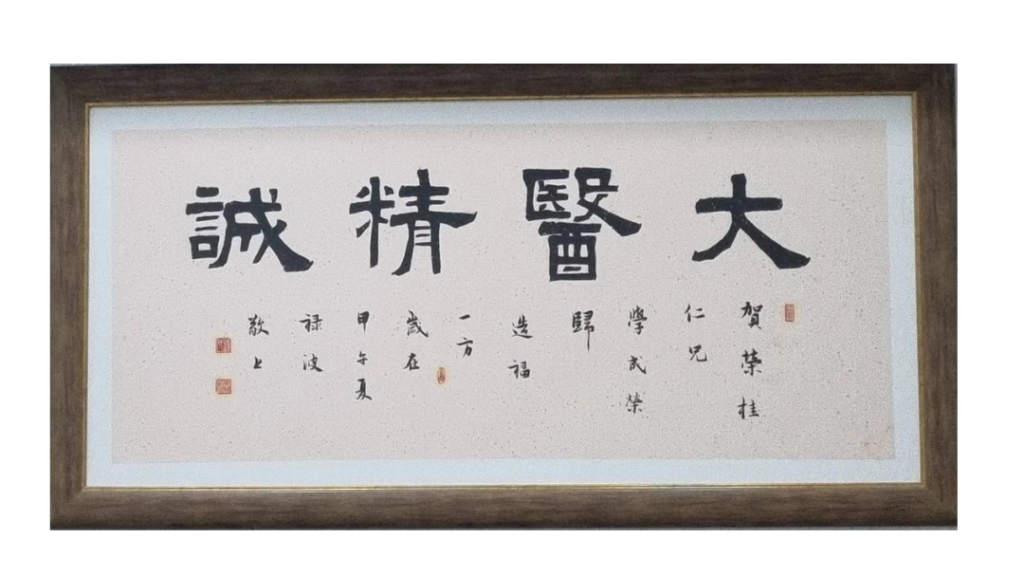 大醫精誠
賀榮桂
仁兄
學成榮
歸
造福
一方
歲在
甲午夏
禄波
敬上